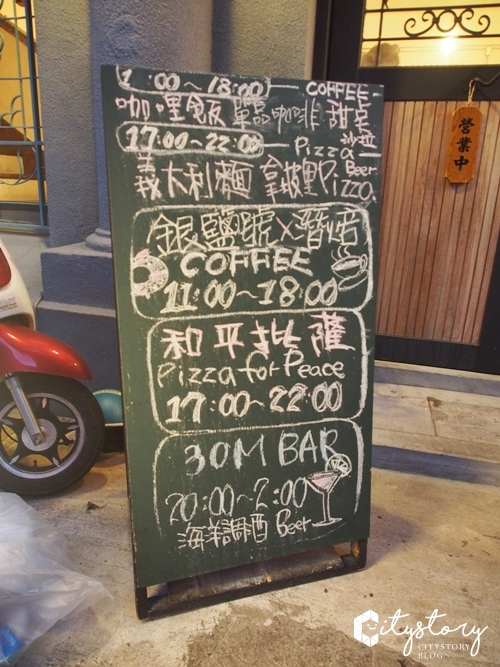 1 :00~18:00 COFFEE
咖哩飯 單品咖啡 甜品
17:00~22:00 Pizza 沙拉 Beer
義大利麵 拿坡里Pizza
銀鹽號×潛焙
COFFEE
11:00~18:00
和平批薩
Pizza for Peace
17:00~22:00
30M BAR
20:00~2:00
海洋調酒 Beer
營業中
Citystory
CITYSTORY
BLOG